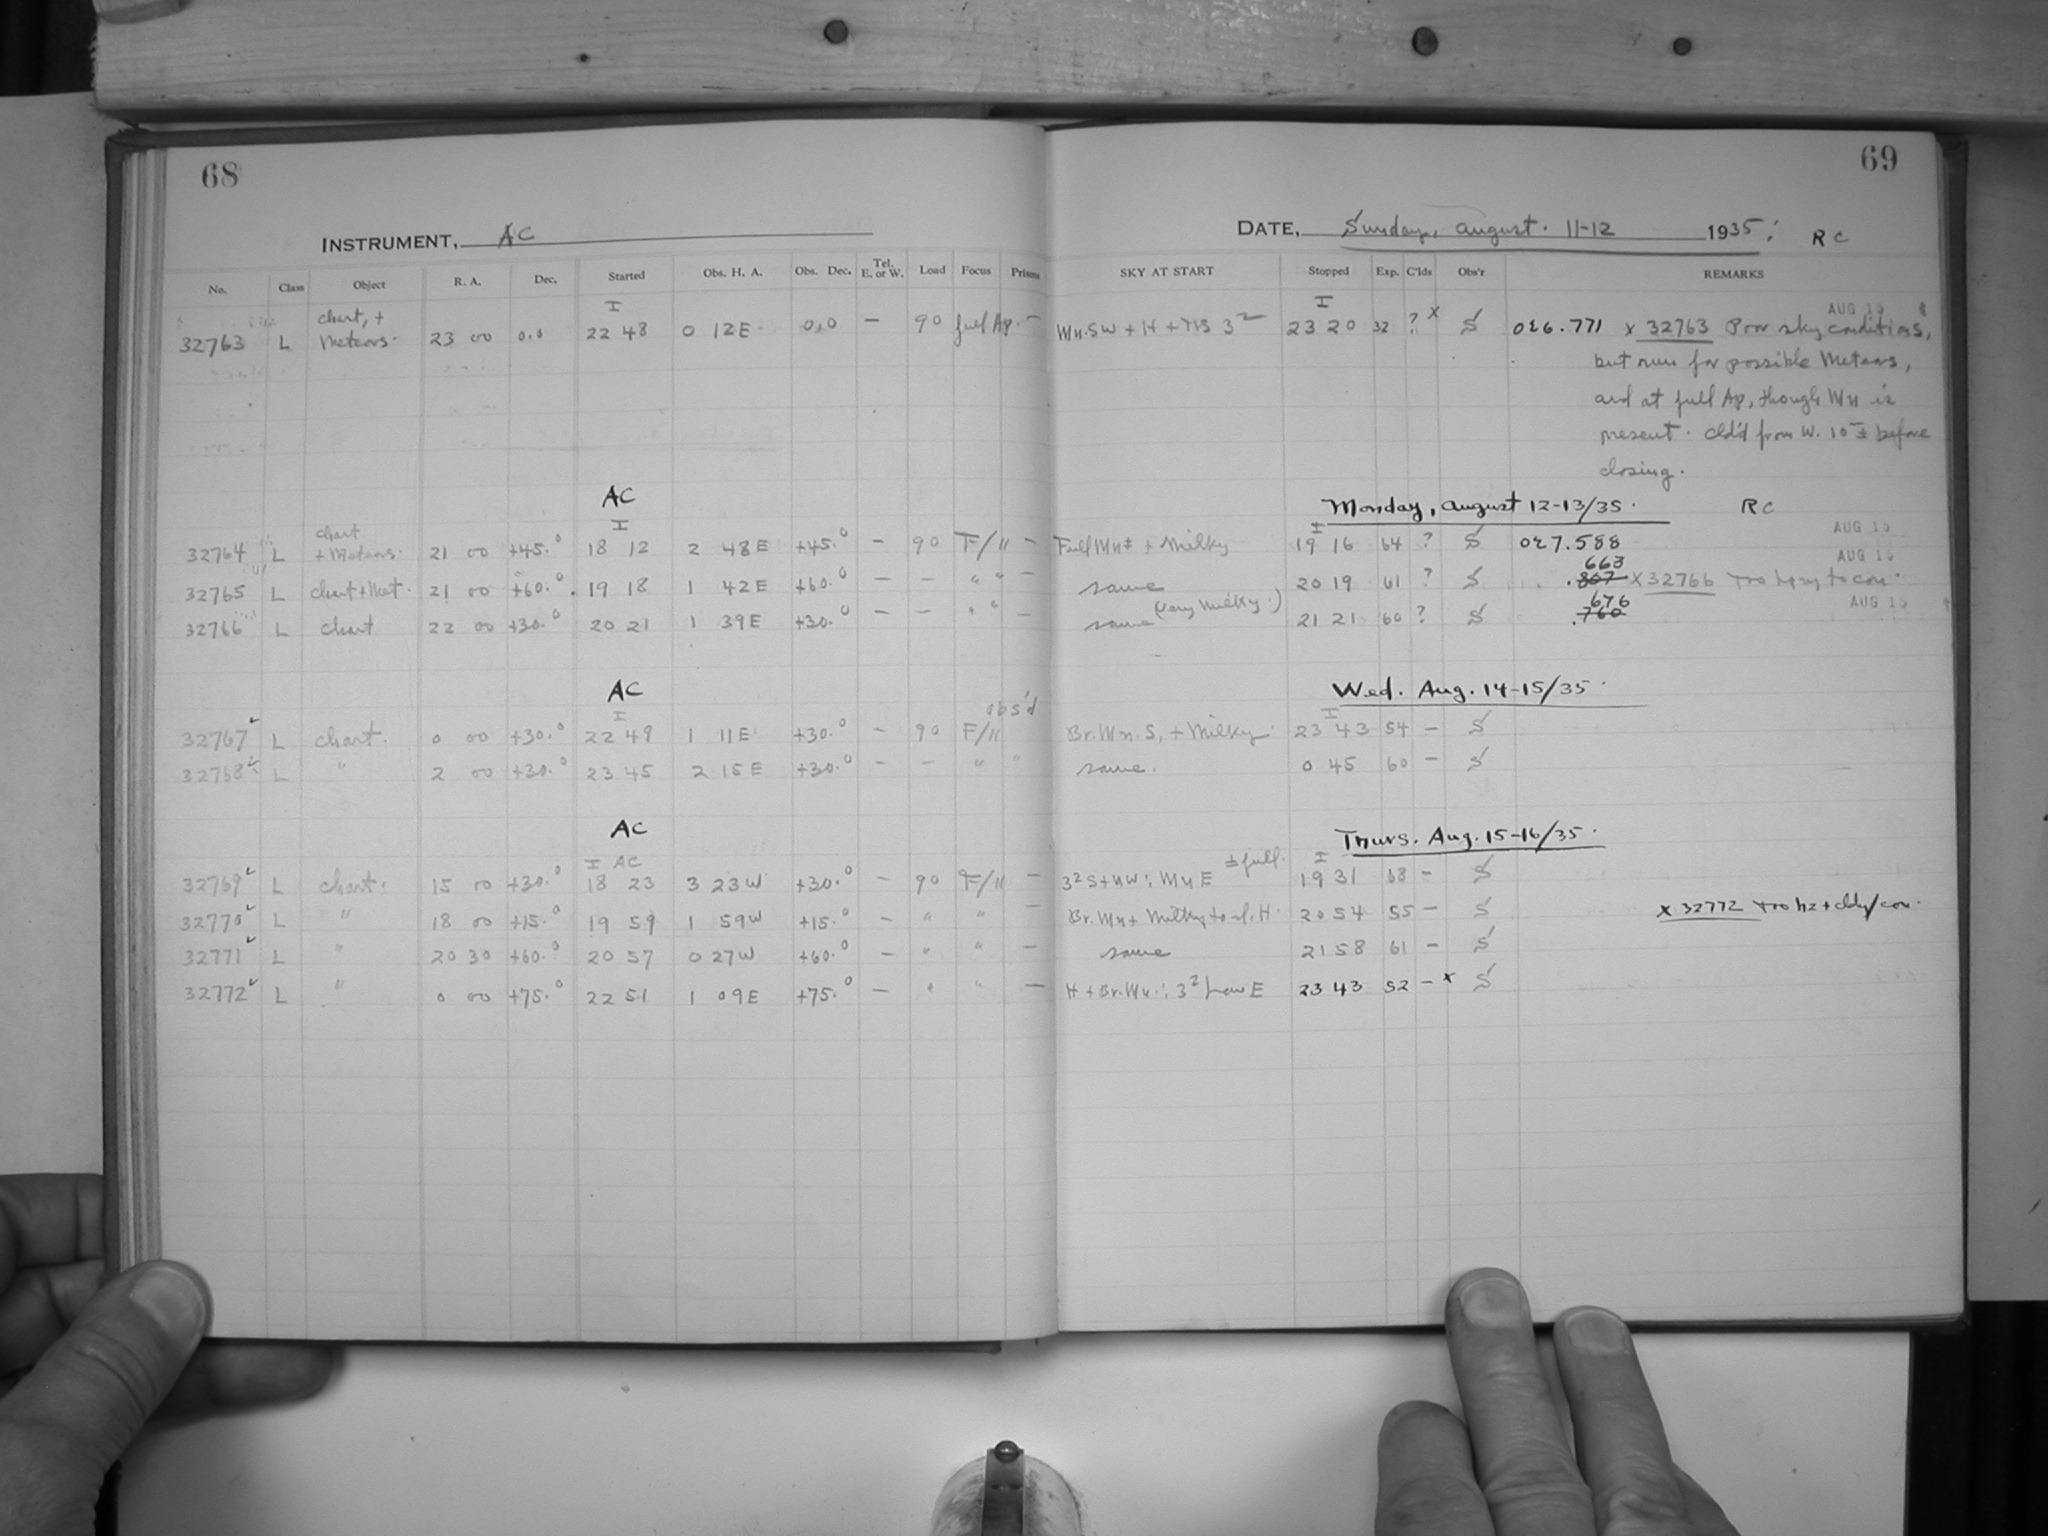 68
INSTRUMENT, AC
No. Class Object R. A. Dec. Started Obs. H. A. Obs. Dec. Tel. E. or W. Load Focus Prisms
I
32763 L chart, + Meteors. 23 00 0.0 22 48 0 12E 0.0 — 90 full Ap. —
AC
I
32764 L chart + Meteors. 21 00 +45.° 18 12 2 48E +45.° — 90 F/11 —
32765 L chart + Met. 21 00 +60.° 19 18 1 42E +60.° — — " " —
32766 L chart 22 00 +30.° 20 21 1 39E +30.° — — " " —
AC
I obs'd
32767 L chart. 0 00 +30.° 22 49 1 11E +30.° — 90 F/11
32768 L " 2 00 +30.° 23 45 2 15E +30.° — — " "
AC
I AC
32769 L chart. 15 00 +30.° 18 23 3 23W +30.° — 90 F/11 —
32770 L " 18 00 +15.° 19 59 1 59W +15.° — " " —
32771 L " 20 30 +60.° 20 57 0 27W +60.° — " " —
32772 L " 0 00 +75.° 22 51 1 09E +75.° — " " —
69
DATE, Sunday, August. 11-12 1935; RC
SKY AT START Stopped Exp. C'lds Obs'r REMARKS
I AUG 15
Mn. SW + H + 3² 23 20 32 ? x S 026.771 x 32763 Poor sky conditions,
but run for possible Meteors,
and at full Ap, though Mn is
present. Cld'd from W. 10 ± before
closing.
Monday, August 12-13/35. RC
I AUG 15
Full Mn + Milky 19 16 64 ? S 027.588
AUG 15
663
same 20 19 61 ? S .807 x 32766 Too hazy to con.
676 AUG 15
same (very Milky.) 21 21 60 ? S .760
Wed. Aug. 14-15/35.
I
Br. Mn. S, + Milky. 23 43 54 — S
same. 0 45 60 — S
Thurs. Aug. 15-16/35.
± full. I
3² S + NW; Mn E 19 31 68 — S
Br. Mn + Milky to H. 20 54 55 — S x 32772 Too hz + cldy/con.
same 21 58 61 — S
H + Br. Mn.; 3² from E 23 43 52 — x S